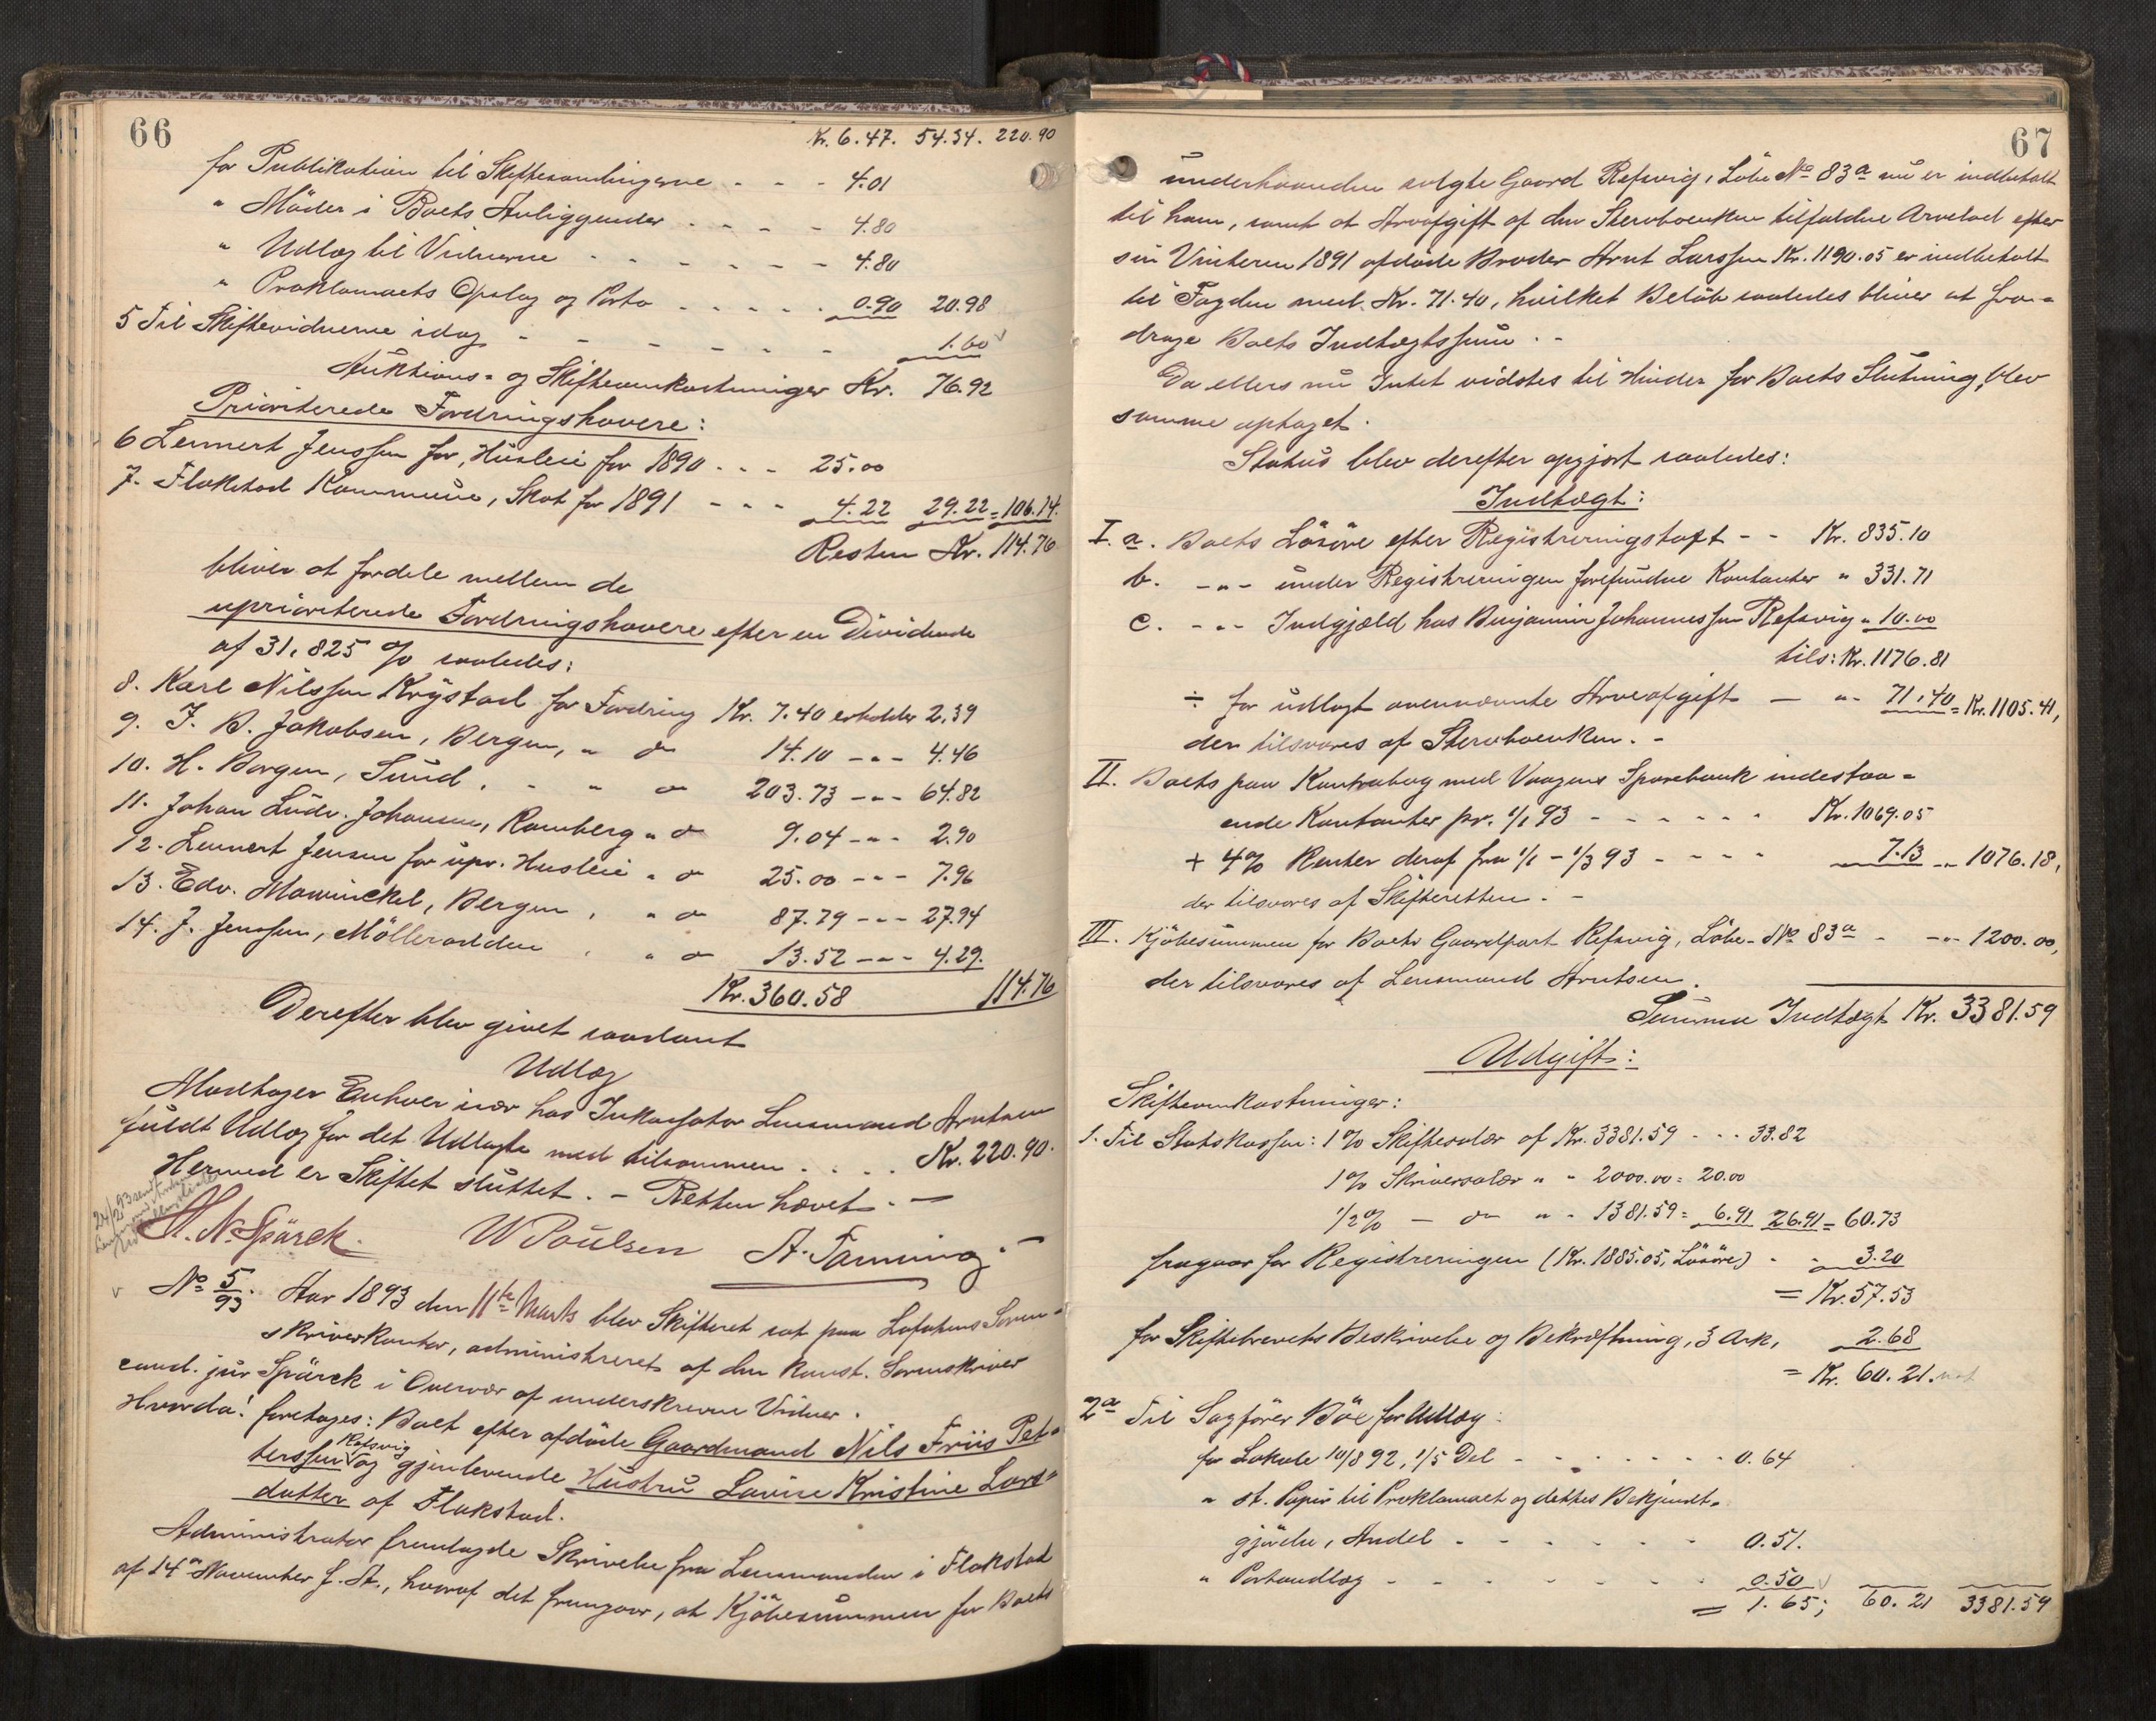 66
Kr. 6.47. 54.34. 220.90
for Publikation til Skiftesamlingerne - - - 4.01
" Möder i Boets Anliggender - - - - 4.80
" Udlæg til Vidnerne - - - - - - 4.80
" Proklamaets Opslag og Porto - - - - - 0.90 20.98
5 Til Skiftevidnerne idag - - - - - - - 1.60
Auktions- og Skifteomkostninger Kr. 76.92
Prioriterede Fordringshavere:
6 Lennert Jenssen for Husleie for 1890 - - - 25.00
7. Flakstad Kommune, Skat for 1891 - - - 4.22 29.22 = 106.14.
Resten Kr. 114.76
bliver at fordele mellem de
uprioriterede Fordringshavere efter en Dividende
af 31,825 % saaledes:
8. Karl Nilssen Krystad for Fordring Kr. 7.40 erholder 2.39
9. J. B. Jakobsen, Bergen, " do 14.10 -"- 4.46
10. H. Borgen, Sund, " " do 203.73 -"- 64.82
11. Johan Ludv. Johansen, Ramberg " do 9.04 -"- 2.90
12. Lennert Jensen for upr. Husleie " do 25.00 -"- 7.96
13. Edv. Mowinckel, Bergen, " do 87.79 -"- 27.94
14. J. Jenssen, Mölleradden, " do 13.52 -"- 4.29.
Kr. 360.58 114.76
Derefter blev givet saadant
Udlæg
Modtager Enhver især hos Inkassator Lensmand Arntsen
fuldt Udlæg for det Udlagte med tilsammen . . . . Kr. 220.90.
Hermed er Skiftet sluttet. - Retten hævet. -
24/2 93 sendt
H. N. Spärck. W Poulsen A. Tanning.
No 5/93. Aar 1893 den 11te Marts blev Skifteret sat paa Lofotens Soren-
skriverkontor, administreret af den konst. Sorenskriver
cand. jur Spärck i Overvær af underskrevne Vidner.
Hvorda! foretages: Boet efter afdöde Gaardmand Nils Friis Pet-
Refsvig
terssen og gjenlevende Hustru Lovise Kristine Lars-
datter af Flakstad.
Administrator fremlagde Skrivelse fra Lensmanden i Flakstad
af 14de November f. A., hvoraf det fremgaar, at Kjöbesummen for Boets
67
underhaanden solgte Gaard Refsvig, Löbe No 83a nu er indbetalt
til ham, samt at Arveafgift af den Stervboenken tilfaldne Arvelod efter
sin Vinteren 1891 afdöde Broder Arnt Larssen Kr. 1190.05 er indbetalt
til Fogden med Kr. 71.40, hvilket Belöb saaledes bliver at fra-
drage Boets Indtægtssum. -
Da ellers nu Intet vidstes til Hinder for Boets Slutning, blev
samme optaget.
Status blev derefter opgjort saaledes:
Indtægt:
I. a. Boets Lösöre efter Registreringstaxt - - Kr. 835.10
b. -"- under Registreringen forefundne Kontanter " 331.71
c. -"- Indgjæld hos Benjamin Johannessen Refsvig " 10.00
tils: Kr. 1176.81
÷ for udlagt ovennævnte Arveafgift — " 71.40 = Kr. 1105.41,
der tilsvares af Stervboenken. -
II. Boets paa Kontrabog med Vaagens Sparebank indestaa-
ende Kontanter pr. 1/1 93 - - - - - - Kr. 1069.05
+ 4% Renter deraf fra 1/1 - 1/3 93 - - - - 7.13 " 1076.18,
der tilsvares af Skifteretten. -
III. Kjöbesummen for Boets Gaardpart Refsvig, Löbe-No 83a - -"- 1200.00,
der tilsvares af Lensmand Arntsen.
Summa Indtægt Kr. 3381.59
Udgift:
Skifteomkostninger:
1. Til Statskassen: 1% Skiftesalær af Kr. 3381.59 - - - 33.82
1% Skriversalær " " 2000.00 = 20.00
1/2% — do " " 1381.59 = 6.91 26.91 = 60.73
fragaar for Registreringen (Kr. 1885.05, Lösöre) - - 3.20
= Kr. 57.53
for Skiftebrevets Beskrivelse og Bekræftning, 3 Ark, 2.68
= Kr. 60.21.
2a Til Sagförer Böe for Udlæg:
for Lokale 10/8 92, 1/5 Del - - - - - - - 0.64
" st. Papir til Proklamaet og dettes Bekjendt-
gjörelse, Andel - - - - - - 0.51.
" Portoudlæg - - - - - - - 0.50
= 1.65; 60.21 3381.59